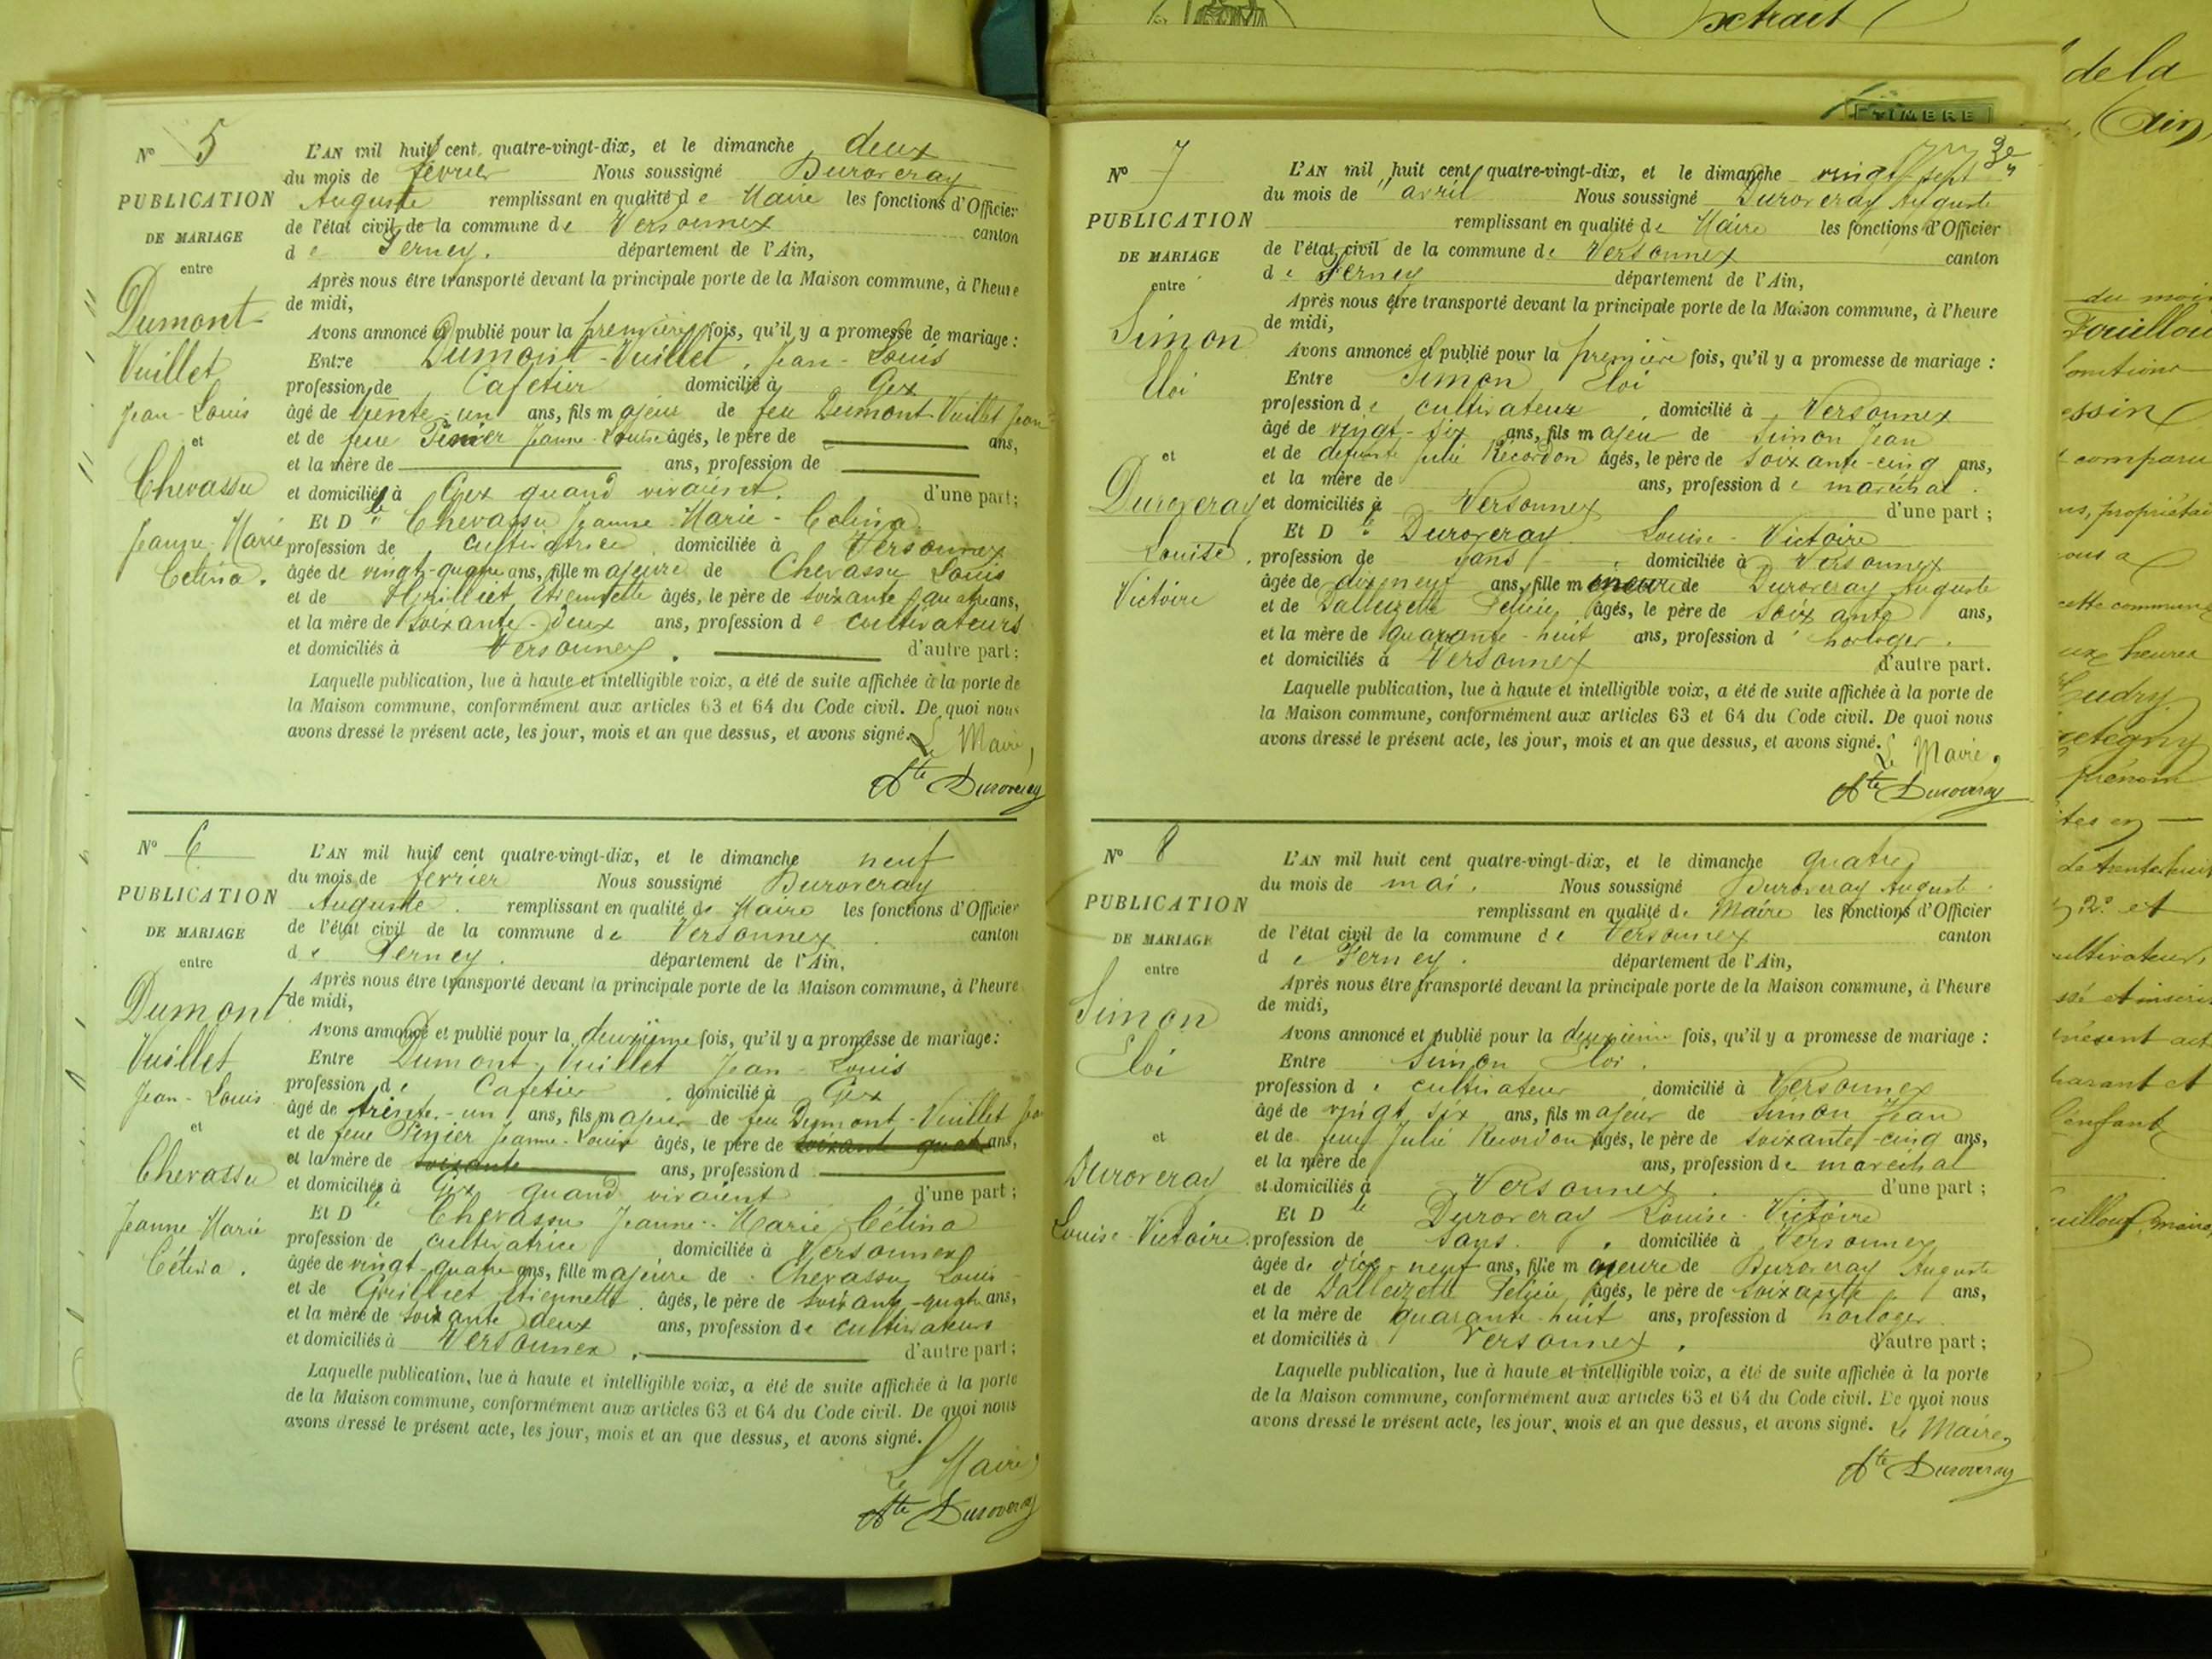 N° 5
PUBLICATION
DE MARIAGE
entre
Dumont
Vuillet
Jean-Louis
et
Chevassu
Jeanne-Marie
Célina.
L'AN mil huit cent quatre-vingt-dix, et le dimanche deux
du mois de février Nous soussigné Duroveray
Auguste remplissant en qualité de Maire les fonctions d'Officier
de l'état civil de la commune de Versonnex canton
de Ferney. département de l'Ain,
Après nous être transporté devant la principale porte de la Maison commune, à l'heure
de midi,
Avons annoncé et publié pour la première fois, qu'il y a promesse de mariage :
Entre Dumont-Vuillet, Jean-Louis
profession de Cafetier domicilié à Gex
âgé de trente-un ans, fils majeur de feu Dumont-Vuillet Jean
et de feue Jeanne-Louise âgés, le père de ans,
et la mère de ans, profession de
et domiciliés à Gex quand vivaient. d'une part ;
Et Dlle Chevassu Jeanne-Marie-Celina
profession de cultivatrice, domiciliée à Versonnex
âgée de vingt-quatre ans, fille majeure de Chevassu Louis
et de Grilliet Etiennette âgés, le père de soixante quatre ans,
et la mère de soixante-deux ans, profession de cultivateurs
et domiciliés à Versonnex. d'autre part ;
Laquelle publication, lue à haute et intelligible voix, a été de suite affichée à la porte de
la Maison commune, conformément aux articles 63 et 64 du Code civil. De quoi nous
avons dressé le présent acte, les jour, mois et an que dessus, et avons signé.
Le Maire,
Ate Duroveray
N° 6
PUBLICATION
DE MARIAGE
entre
Dumont
Vuillet
Jean-Louis
et
Chevassu
Jeanne Marie
Célina.
L'AN mil huit cent quatre-vingt-dix, et le dimanche neuf
du mois de février Nous soussigné Duroveray
Auguste. remplissant en qualité de Maire les fonctions d'Officier
de l'état civil de la commune de Versonnex canton
de Ferney. département de l'Ain,
Après nous être transporté devant la principale porte de la Maison commune, à l'heure
de midi,
Avons annoncé et publié pour la deuxième fois, qu'il y a promesse de mariage :
Entre Dumont, Vuillet Jean-Louis
profession de Cafetier, domicilié à Gex
âgé de trente-un ans, fils majeur de feu Dumont-Vuillet
et de feue Jeanne-Louise âgés, le père de ans,
et la mère de ans, profession d
et domiciliés à Gex quand vivaient d'une part ;
Et Dlle Chevassu Jeanne-Marie Célina
profession de cultivatrice, domiciliée à Versonnex
âgée de vingt-quatre ans, fille majeure de Chevassu Louis
et de Grilliet Etiennette âgés, le père de soixante-quatre ans,
et la mère de soixante deux ans, profession de cultivateurs
et domiciliés à Versonnex, d'autre part ;
Laquelle publication, lue à haute et intelligible voix, a été de suite affichée à la porte
de la Maison commune, conformément aux articles 63 et 64 du Code civil. De quoi nous
avons dressé le présent acte, les jour, mois et an que dessus, et avons signé.
Le Maire
Ate Duroveray
N° 7
PUBLICATION
DE MARIAGE
entre
Simon
Eloi
et
Duroveray
Louise
Victoire
L'AN mil huit cent quatre-vingt-dix, et le dimanche vingt sept
du mois de avril Nous soussigné Duroveray Auguste
remplissant en qualité de Maire les fonctions d'Officier
de l'état civil de la commune de Versonnex canton
de Ferney département de l'Ain,
Après nous être transporté devant la principale porte de la Maison commune, à l'heure
de midi,
Avons annoncé et publié pour la première fois, qu'il y a promesse de mariage :
Entre Simon Eloi
profession de cultivateur, domicilié à Versonnex
âgé de vingt-six ans, fils majeur de Simon Jean
et de défunte Julie Récordon âgés, le père de soixante-cinq ans,
et la mère de ans, profession de maréchal.
et domiciliés à Versonnex d'une part ;
Et Dlle Duroveray Louise-Victoire
profession de sans, domiciliée à Versonnex
âgée de dix neuf ans, fille mineure de Duroveray Auguste
et de âgés, le père de soixante ans,
et la mère de quarante-huit ans, profession d'horloger.
et domiciliés à Versonnex d'autre part.
Laquelle publication, lue à haute et intelligible voix, a été de suite affichée à la porte de
la Maison commune, conformément aux articles 63 et 64 du Code civil. De quoi nous
avons dressé le présent acte, les jour, mois et an que dessus, et avons signé.
Le Maire,
Ate Duroveray
N° 8
PUBLICATION
DE MARIAGE
entre
Simon
Eloi
et
Duroveray
Louise-Victoire.
L'AN mil huit cent quatre-vingt-dix, et le dimanche quatre
du mois de mai. Nous soussigné Duroveray Auguste
remplissant en qualité de Maire les fonctions d'Officier
de l'état civil de la commune de Versonnex canton
de Ferney. département de l'Ain,
Après nous être transporté devant la principale porte de la Maison commune, à l'heure
de midi,
Avons annoncé et publié pour la deuxième fois, qu'il y a promesse de mariage :
Entre Simon Eloi.
profession de cultivateur domicilié à Versonnex
âgé de vingt six ans, fils majeur de Simon Jean
et de feue Julie Récordon âgés, le père de soixante-cinq ans,
et la mère de ans, profession de maréchal
et domiciliés à Versonnex. d'une part ;
Et Dlle Duroveray Louise-Victoire
profession de sans. domiciliée à Versonnex
âgée de dix-neuf ans, fille mineure de Duroveray Auguste
et de âgés, le père de soixante ans,
et la mère de quarante-huit ans, profession d horloger
et domiciliés à Versonnex, d'autre part ;
Laquelle publication, lue à haute et intelligible voix, a été de suite affichée à la porte
de la Maison commune, conformément aux articles 63 et 64 du Code civil. De quoi nous
avons dressé le présent acte, les jour, mois et an que dessus, et avons signé.
Le Maire,
Ate Duroveray
Extrait
TIMBRE
de la
Ain,
du mois